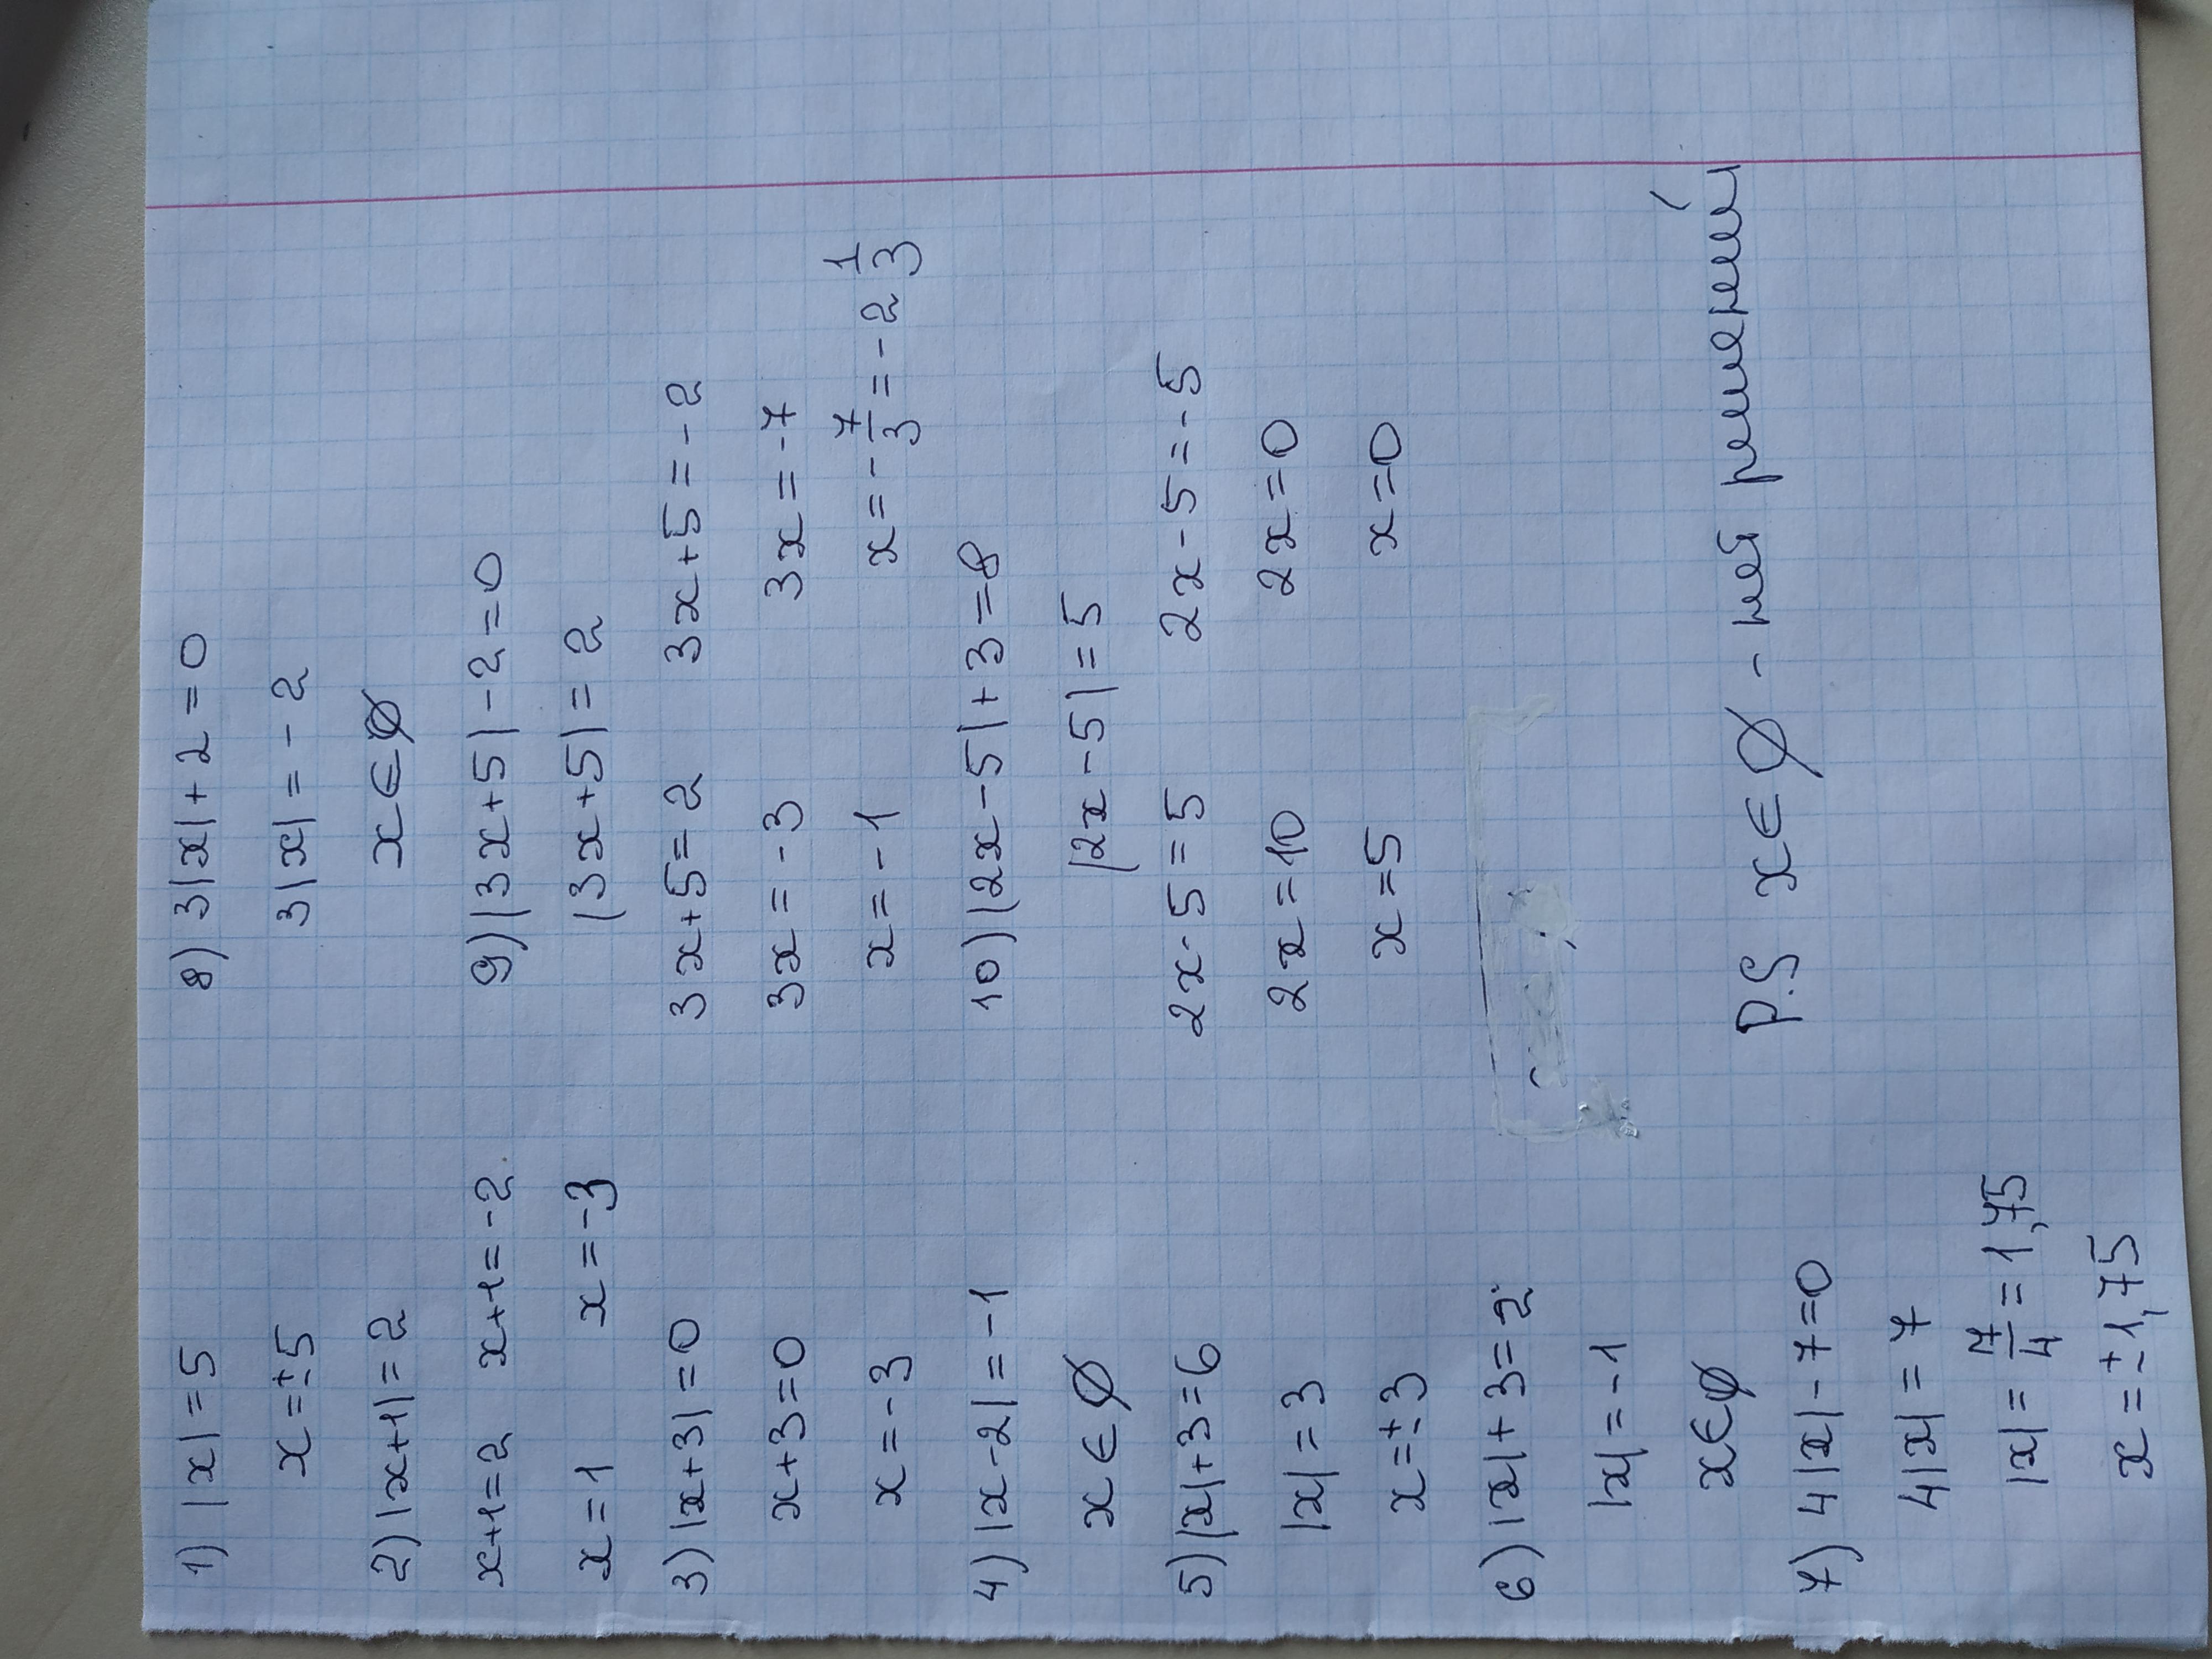 1) |x|=5
x=±5
2) |x+1|=2
x+1=2 x+1=-2
x=1 x=-3
3) |x+3|=0
x+3=0
x=-3
4) |x-2|=-1
x∈∅
5) |x|+3=6
|x|=3
x=±3
6) |x|+3=2
|x|=-1
x∈∅
7) 4|x|-7=0
4|x|=7
|x|=7/4=1,75
x=±1,75
8) 3|x|+2=0
3|x|=-2
x∈∅
9) |3x+5|-2=0
|3x+5|=2
3x+5=2 3x+5=-2
3x=-3 3x=-7
x=-1 x=-7/3=-2 1/3
10) |2x-5|+3=8
|2x-5|=5
2x-5=5 2x-5=-5
2x=10 2x=0
x=5 x=0
P.S x∈∅ - нет решений